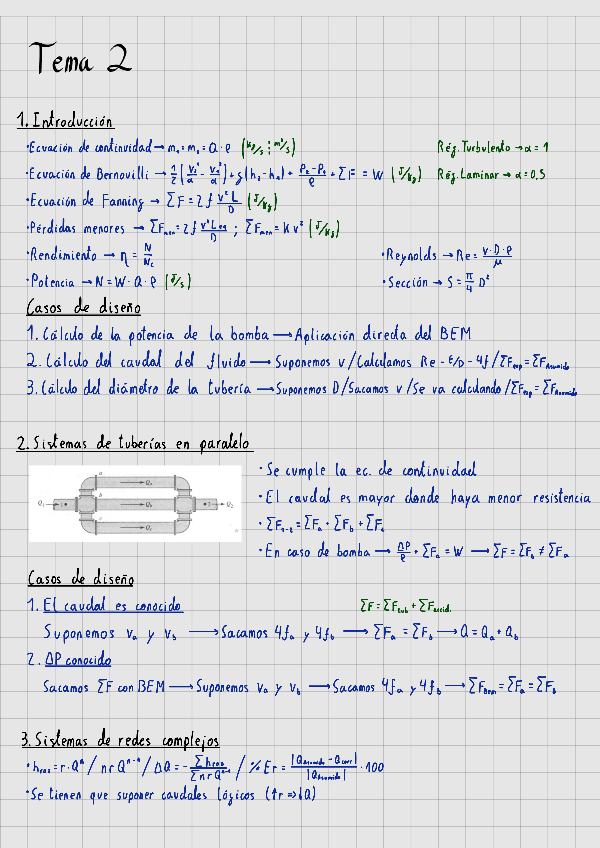 Tema 2
1. Introducción
·Ecuación de continuidad → m₁ = m₂ = Q · ρ (kg/s ; m³/s) Rég. Turbulento → α = 1
·Ecuación de Bernouilli → 1/2 (v₂²/α - v₁²/α) + g(h₂ - h₁) + P₂ - P₁/ρ + ΣF = W (J/kg) Rég. Laminar → α = 0,5
·Ecuación de Fanning → ΣF = 2f v² L/D (J/kg)
·Pérdidas menores → ΣFmen = 2f v² Leq/D ; ΣFmen = K v² (J/kg)
·Rendimiento → η = N/Nc ·Reynolds → Re = v·D·ρ/μ
·Potencia → N = W · Q · ρ (J/s) ·Sección → S = π/4 D²
Casos de diseño
1. Cálculo de la potencia de la bomba → Aplicación directa del BEM
2. Cálculo del caudal del fluido → Suponemos v / Calculamos Re - ε/D - 4f / ΣFexp = ΣFAsumido
3. Cálculo del diámetro de la tubería → Suponemos D / Sacamos v / Se va calculando / ΣFexp = ΣFAsumido
2. Sistemas de tuberías en paralelo
a
Q₁ 1 Qa
b Qb 2 Q₂
c Qc
· Se cumple la ec. de continuidad
· El caudal es mayor donde haya menor resistencia
· ΣF₁₋₂ = ΣFa + ΣFb + ΣFc
· En caso de bomba → ΔP/ρ + ΣFa = W → ΣF = ΣFb ≠ ΣFa
Casos de diseño
1. El caudal es conocido ΣF = ΣFtub + ΣFaccid.
Suponemos va y vb → Sacamos 4fa y 4fb → ΣFa = ΣFb → Q = Qa + Qb
2. ΔP conocido
Sacamos ΣF con BEM → Suponemos va y vb → Sacamos 4fa y 4fb → ΣFBem = ΣFa = ΣFb
3. Sistemas de redes complejos
·hroz = r · Qⁿ / n r Qⁿ⁻¹ / ΔQ = - Σhroz/Σn r Qⁿ⁻¹ / % Er = |QAsumido - Qcorr|/|QAsumido| · 100
·Se tienen que suponer caudales lógicos (↑r ⇒ ↓Q)